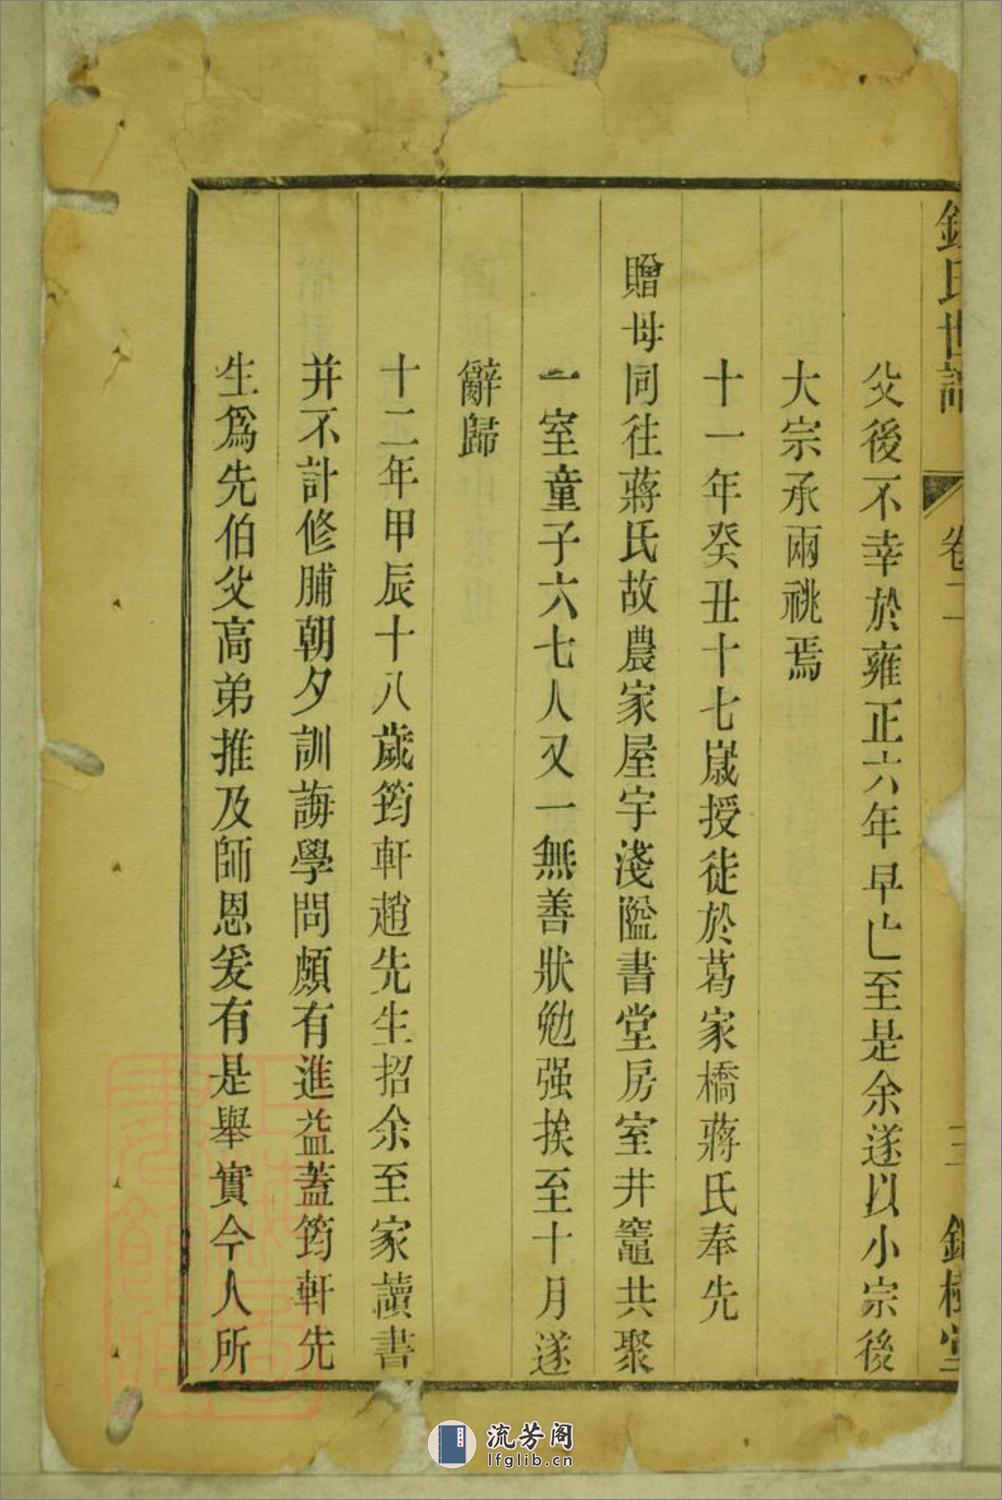 氏世譜 卷二
父後不幸於雍正六年早亡至是余遂以小宗後
大宗承兩祧焉
十一年癸丑十七歲授徒於葛家橋蔣氏奉先
贈母同往蔣氏故農家屋宇淺隘書堂房室井竈共聚
一室童子六七人又一無善狀勉强挨至十月遂
辭歸
十二年甲辰十八歲筠軒趙先生招余至家讀書
并不計修脯朝夕訓誨學問頗有進益蓋筠軒先
生爲先伯父高弟推及師恩爰有是舉實今人所
流芳阁
lfglib.cn